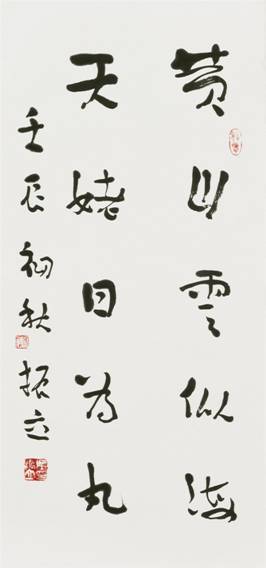 黄山雲似海
天姥日為丸
壬辰初秋振立